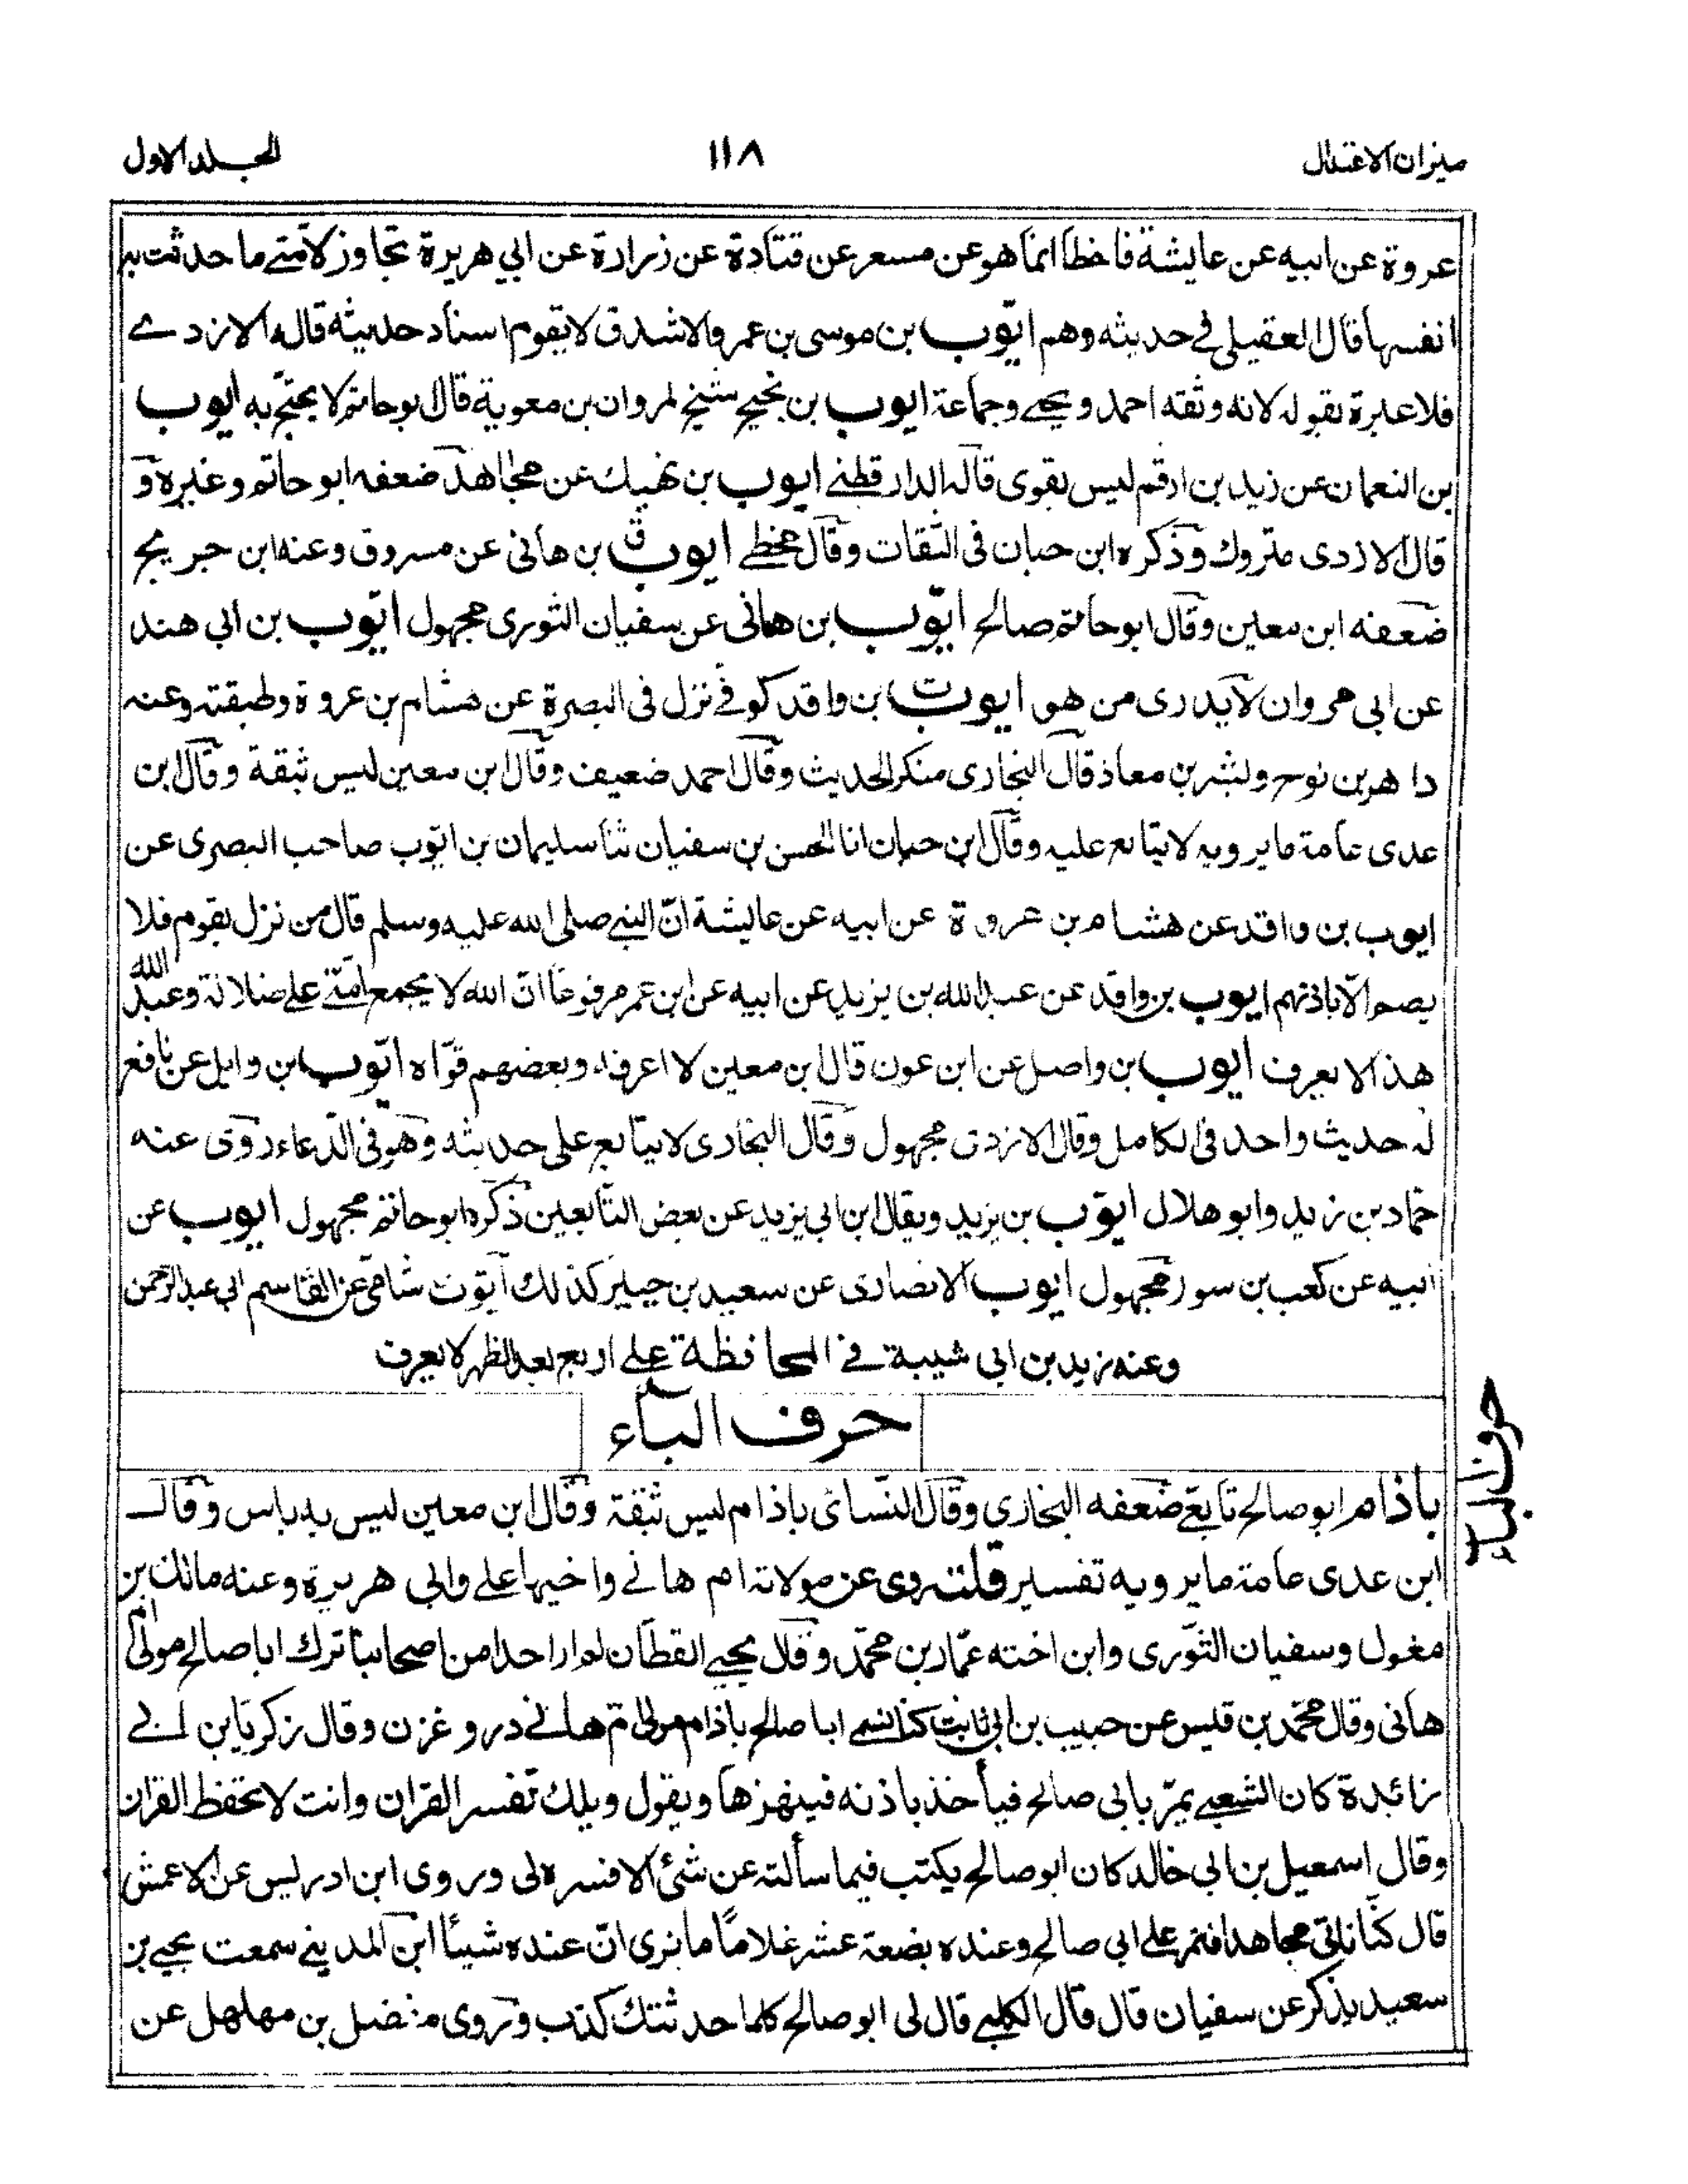 ميزان الاعتدال
١١٨
الجلد الاول
عروة عن ابيه عن عايشة فاخطأ انما هو عن مسعر عن قتادة عن زرارة عن ابي هريرة تجاوز لامتي ما حدثت به
انفسها قال العقيلي في حديثه وهم ايّوب بن موسى بن عمرو الاشدق لا يقوم اسناد حديثه قاله الازدي
فلا عبرة بقوله لانه وثقه احمد ويحيى وجماعة ايوب بن نجيح شيخ لمروان بن معوية قال ابو حاتم لا يحتج به ايوب
بن النعمان عن زيد بن ارقم ليس بقوى قاله الدارقطني ايوب بن نهيك عن مجاهد ضعفه ابو حاتم وغيره و
قال الازدى متروك وذكره ابن حبان فى الثقات وقال يخطى ايوب ق بن هانى عن مسروق وعنه ابن جريج
ضعفه ابن معين وقال ابو حاتم صالح ايّوب بن هانى عن سفيان الثورى مجهول ايّوب بن ابى هند
عن ابى مروان لا يدرى من هو ايوب ت بن واقد كوفى نزل فى البصرة عن هشام بن عروة وطبقته وعنه
داهر بن نوح وبشر بن معاذ قال البخارى منكر الحديث وقال احمد ضعيف وقال ابن معين ليس بثقة وقال ابن
عدى عامة ما يرويه لا يتابع عليه وقال ابن حبان انا الحسن بن سفيان ثنا سليمان بن ايّوب صاحب البصرى عن
ايوب بن واقد عن هشام بن عروة عن ابيه عن عايشة انّ النبى صلى الله عليه وسلم قال من نزل بقوم فلا
يصم الّا باذنهم ايوب بن واقد عن عبد الله بن يزيد عن ابيه عن ابن عمر مرفوعًا انّ الله لا يجمع امّتى على ضلالة وعبد الله
هذا لا يعرف ايوب بن واصل عن ابن عون قال ابن معين لا اعرفه وبعضهم قوّاه ايّوب بن وايل عن نافع
له حديث واحد فى الكامل وقال الازدى مجهول وقال البخارى لا يتابع على حديثه وهو فى الدعاء روى عنه
حمّاد بن زيد وابو هلال ايّوب بن يزيد ويقال ابن ابى يزيد عن بعض التابعين ذكره ابو حاتم مجهول ايوب عن
ابيه عن كعب بن سور مجهول ايوب الانصارى عن سعيد بن جبير كذلك ايّوب ت شامىّ عن القاسم ابى عبد الرحمن
وعنه زيد بن ابى شيبة فى المحافظة على اربع بعد الظهر لا يعرف
حرف الباء
حرف الباء
باذام ابو صالح تابعى ضعفه البخارى وقال النّسائى باذام ليس بثقة وقال ابن معين ليس به باس وقال
ابن عدى عامة ما يرويه تفسير قلت روى عن مولاته ام هانى واخيها على وابى هريرة وعنه مالك بن
مغول وسفيان الثّورى وابن اخته عمّار بن محمّد وقال يحيى القطان لم ار احدا من اصحابنا ترك ابا صالح مولى ام
هانى وقال محمّد بن قيس عن حبيب بن ابى ثابت كنا نسمى ابا صالح باذام مولى ام هانى دروغزن وقال زكريا بن ابى
زائدة كان الشعبى يمرّ بابى صالح فيأخذ باذنه فيهزها ويقول ويلك تفسر القران وانت لا تحفظ القران
وقال اسمعيل بن ابى خالد كان ابو صالح يكتب فيما سألته عن شئ الا فسره لى وروى ابن ادريس عن الاعمش
قال كنّا ناتى مجاهدا فنمر على ابى صالح وعنده بضعة عشر غلامًا ما نرى انّ عنده شيئًا ابن المدينى سمعت يحيى بن
سعيد يذكر عن سفيان قال قال الكلبى قال لى ابو صالح كلما حدثتك كذب وروى مفضل بن مهلهل عن